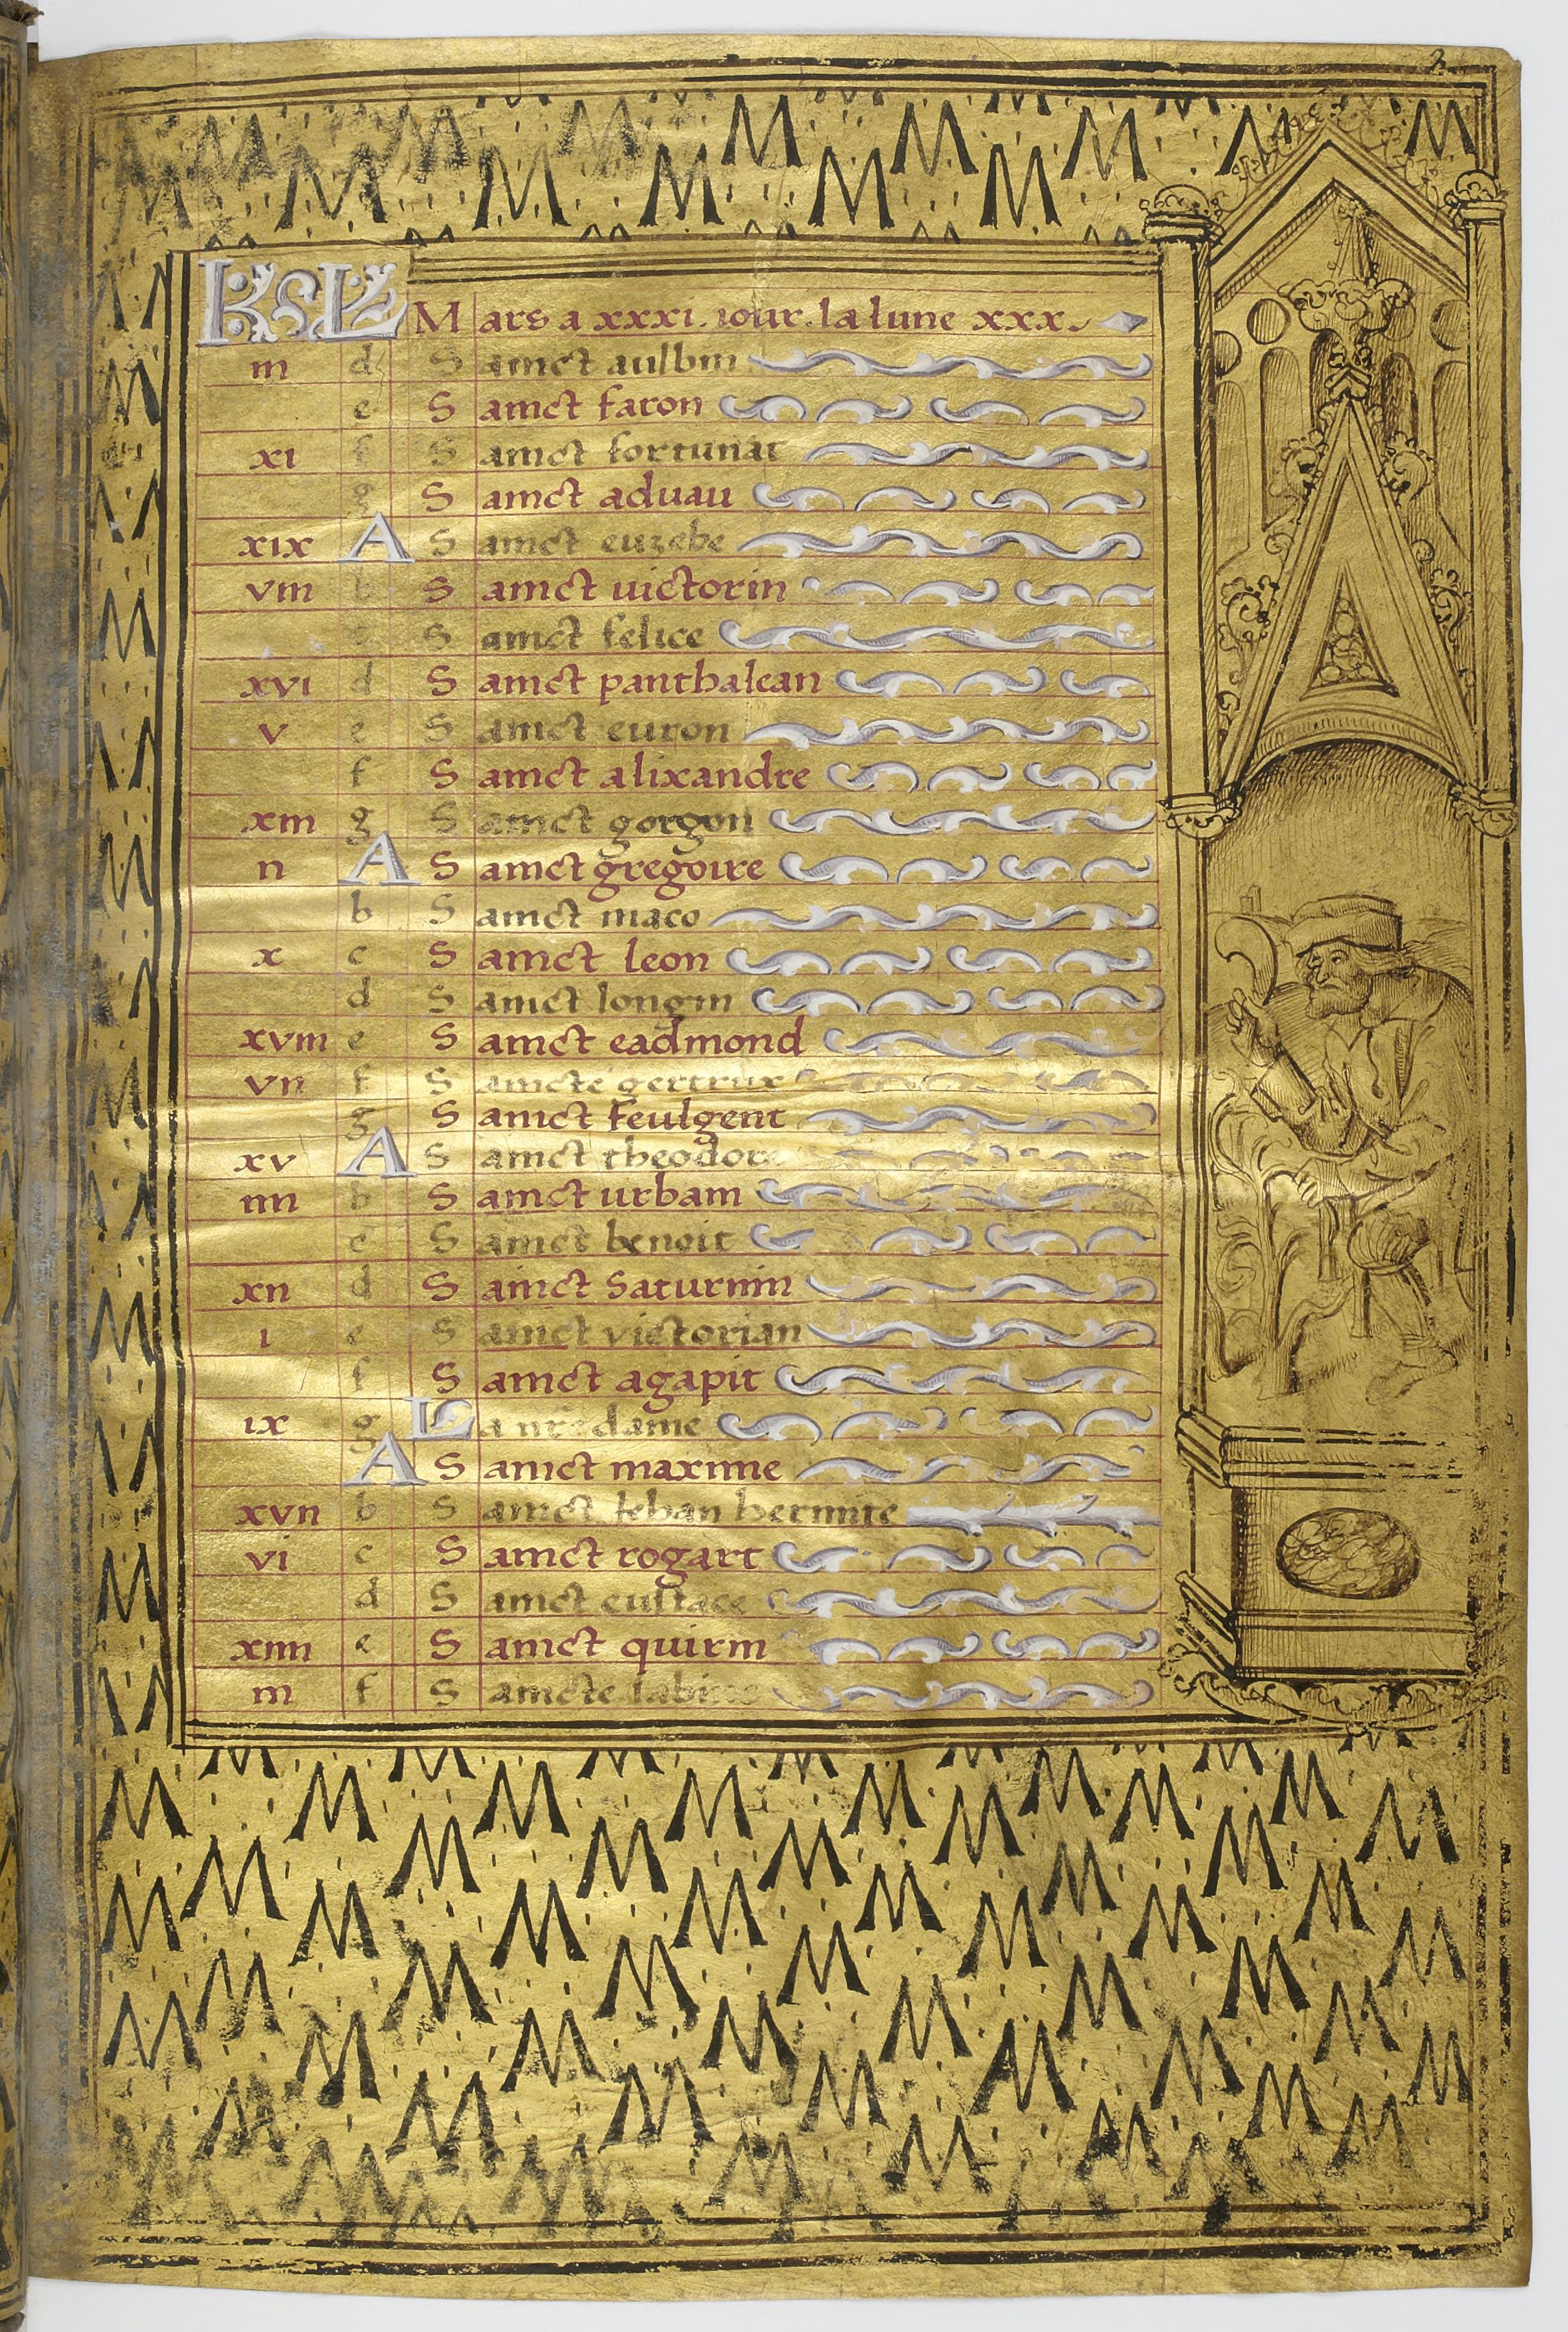 2
KL Mars a xxxi. iour. la lune xxx.
iii d Sainct aulbin
e Sainct faron
xi f Sainct fortunat
g Sainct aduau
xix A Sainct euzebe
viii b Sainct uictorin
c Sainct felice
xvi d Sainct panthalean
v e Sainct euron
f Sainct alixandre
xiii g Sainct gorgon
ii A Sainct gregoire
b Sainct maco
x c Sainct leon
d Sainct longin
xviii e Sainct eadmond
vii f Saincte gertrux
g Sainct feulgent
xv A Sainct theodore
iiii b Sainct urbain
c Sainct benoit
xii d Sainct saturnin
i e Sainct victorian
f Sainct agapit
ix g La nr̃e dame
A Sainct maxime
xvii b Sainct iehan hermite
vi c Sainct rogart
d Sainct eustace
xiiii e Sainct quirin
iii f Saincte